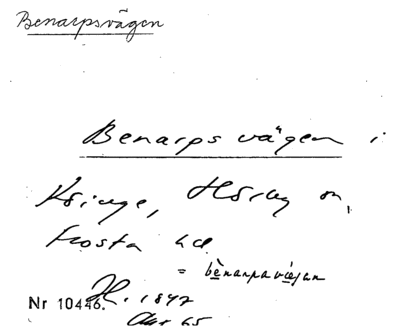 Benarpsvägen
Benarps vägen i
Köinge, Hörby sn,
Frosta hd
= bènarpavä̀jan
Nr 10446. H. 1847